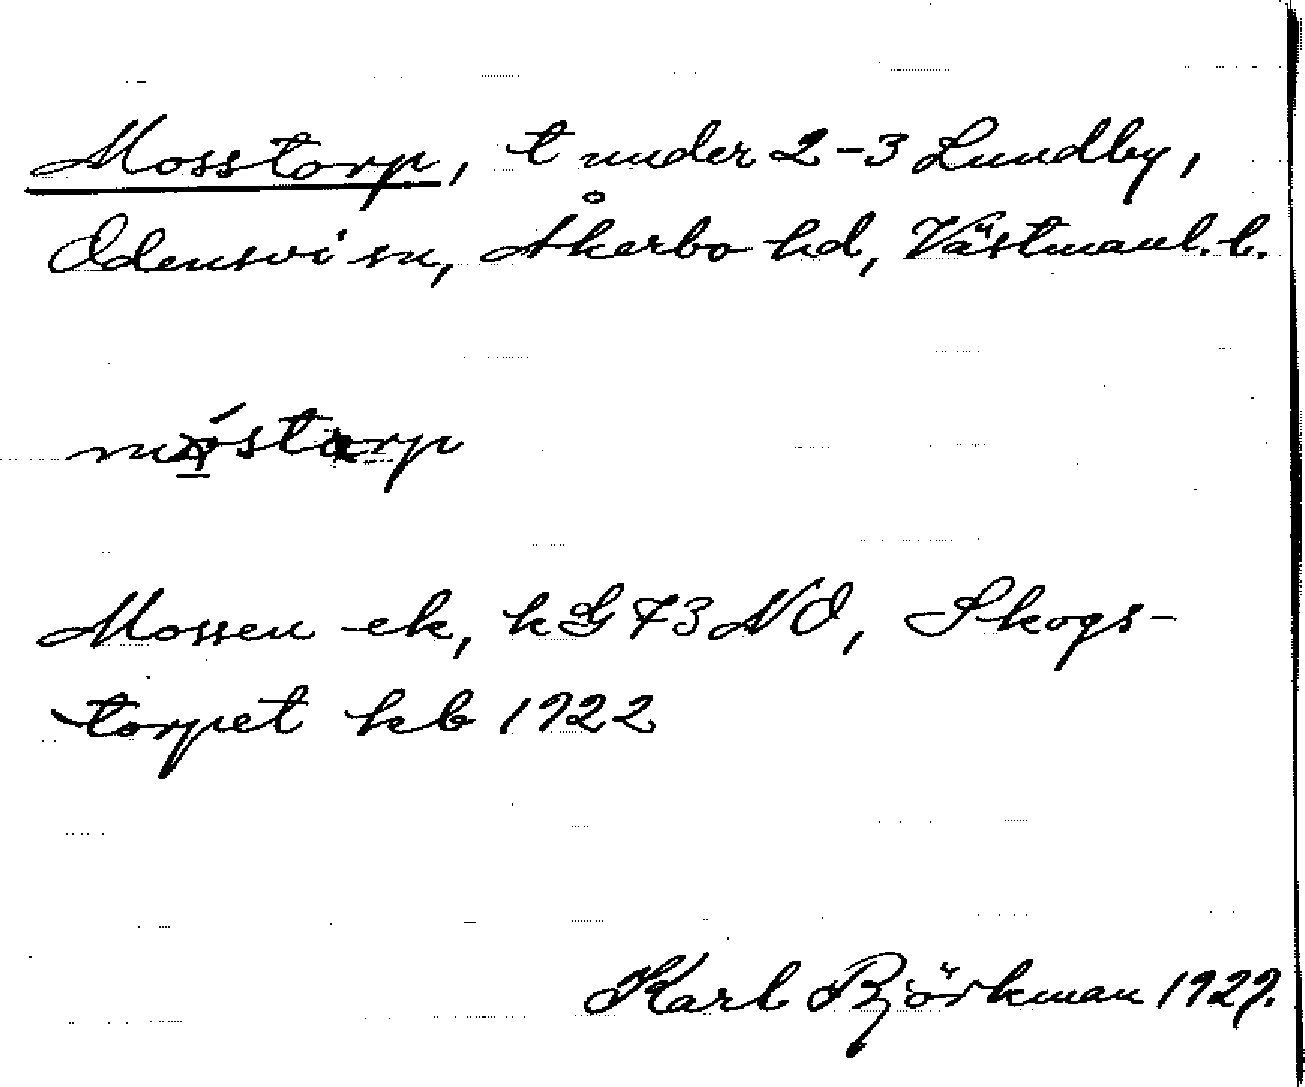 Mosstorp, t under 2-3 Lundby,
Odensvi sn, Åkerbo hd, Västmanl. l.
Mossen ek, k G 73 NO, Skogs-
torpet kb 1922
Karl Björkman 1929.